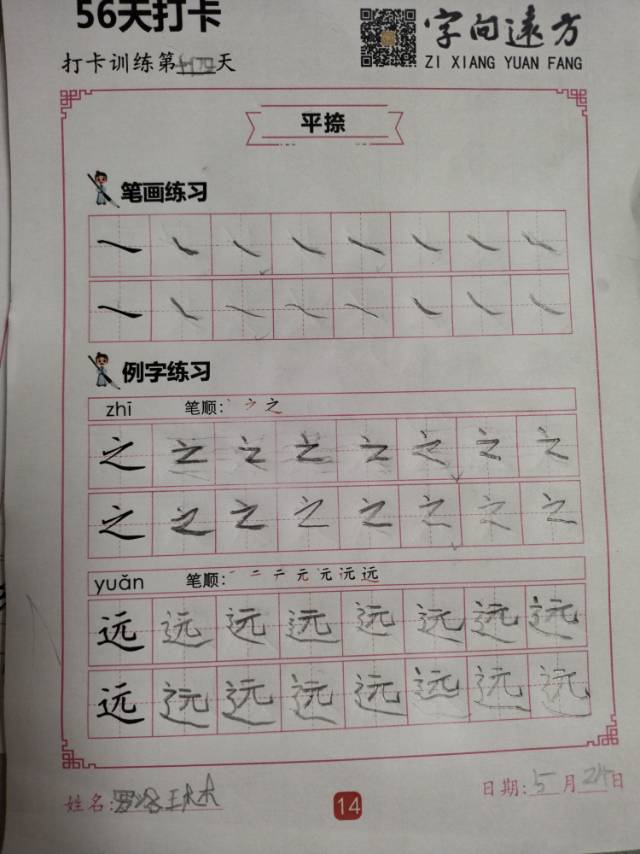 56天打卡
字向远方
ZI XIANG YUAN FANG
打卡训练第天
平捺
笔画练习
例字练习
zhī 笔顺: 丶 ㇇ 之
之 之 之 之 之 之 之 之
之 之 之 之 之 之 之 之
yuǎn 笔顺: 一 二 テ 元 元 沅 远
远 远 远 远 远 远 远 远
远 远 远 远 远 远 远 远
姓名:
14
日期: 5月24日